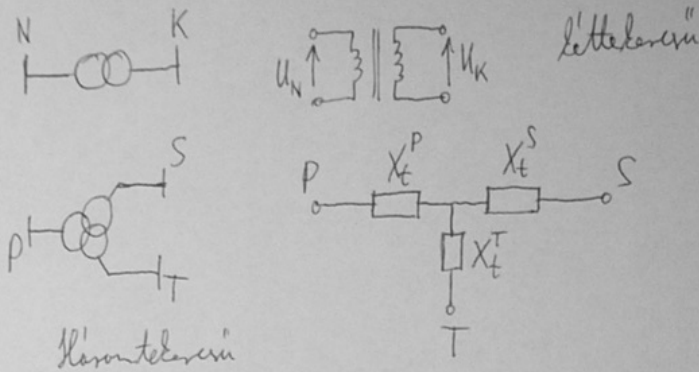 N K
U_N U_K
kéttekercsű
P S T
P X_t^P X_t^S S
X_t^T
T
Háromtekercsű